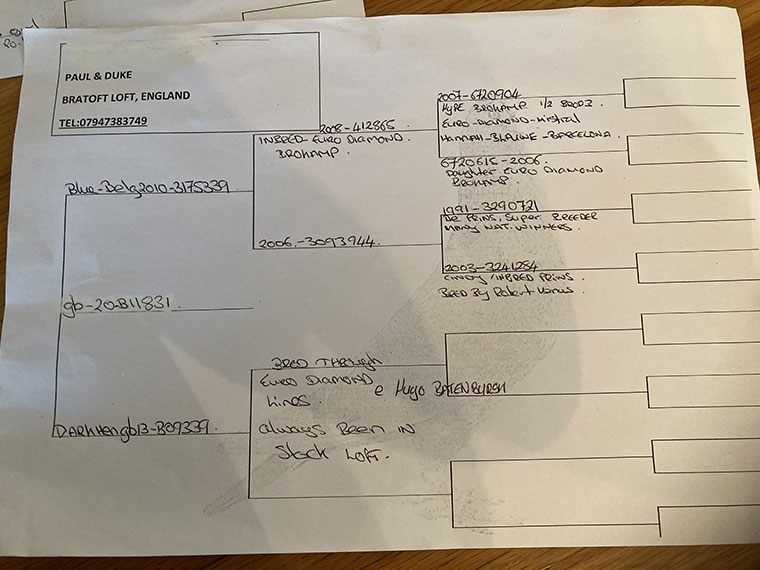 PAUL & DUKE
BRATOFT LOFT, ENGLAND
TEL:07947383749
2008-412865
INBRED-EURO DIAMOND.
BROHAMP.
2007-6720904
HYPE BROHAMP 1/2 BRO
EURO-DIAMOND-MISTRAL
HANNAH-BLAUWE-BARCELONA.
6720615-2006.
Daughter EURO DIAMOND
BROHAMP.
Blue-Belg2010-3175339
2006.-3093944.
1991-3290721
De PRINS, Super BREEDER
MANY NAT. WINNERS
2003-3241284
/INBRED PRINS
BRED By Robert
gb-20-B11831
BRED THROUGH
EURO DIAMOND
Lines.
e Hugo BATENBURGH
always Been in
Stock LOFT.
DARKHENgb13-B09339.